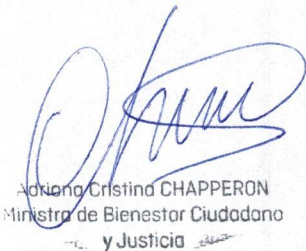 Adriana Cristina CHAPPERON
Ministra de Bienestar Ciudadano
y Justicia